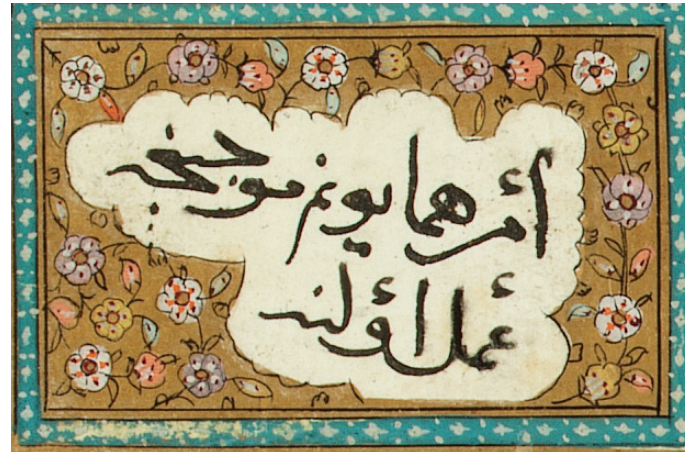 أمر همايونم موجبنجه
عمل اؤلنه